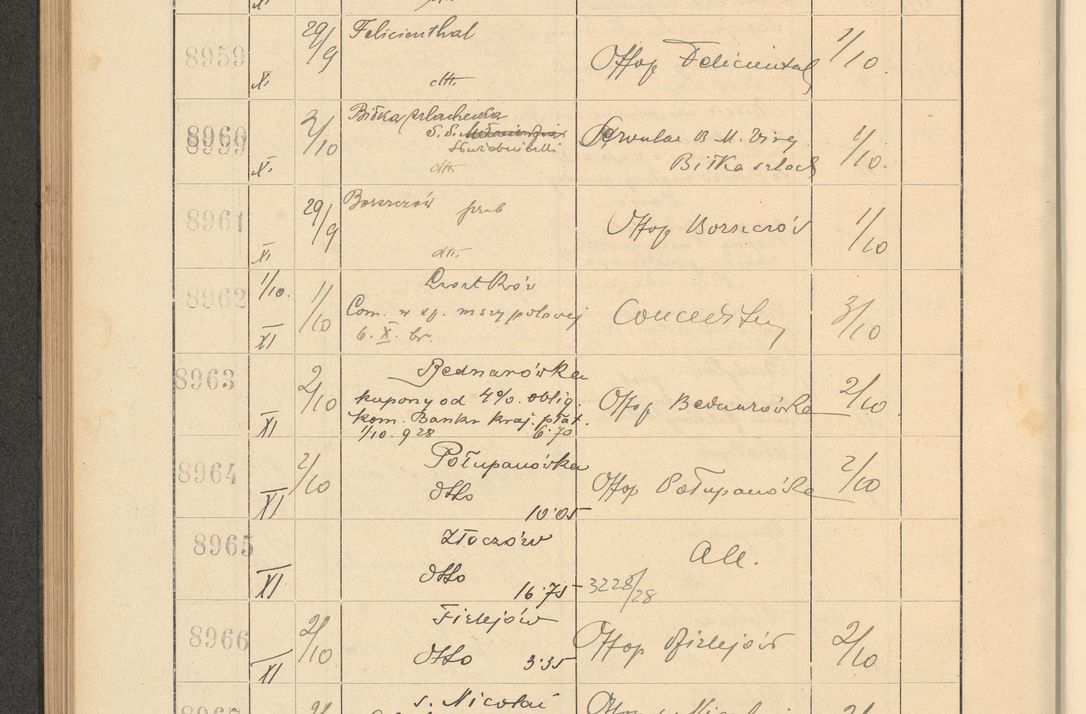 8959 29/9 Felicienthal
Offop Felicienthal 1/10.
X. dtto.
8960 2/10 Biłka szlachecka
S. S.
Służebniczki
Servulae B. M. Virg. 1/10.
Biłka szlach
X. dtto.
8961 29/9 Borszczów prob
Offop Borszczów 1/10
XI dtto.
8962 1/10. 1/10 Czortków
Com. w sp. mszy polowej
Conceditur 3/10
XI 6. X. br.
8963 2/10 Bednarówka
kupony od 4%. oblig.
Offop Bednarówka 2/10
XI kom. Banku kraj. płat.
1/10. 928 6.70
8964 2/10 Połupanówka
Offop Połupanówka 2/10
XI dtto
10.05
8965 Złoczów
All.
XI dtto 16.75 3228/28
8966 2/10 Firlejów
Offop Firlejów 2/10
XI dtto 3.35
8967 2/ s. Nicolai